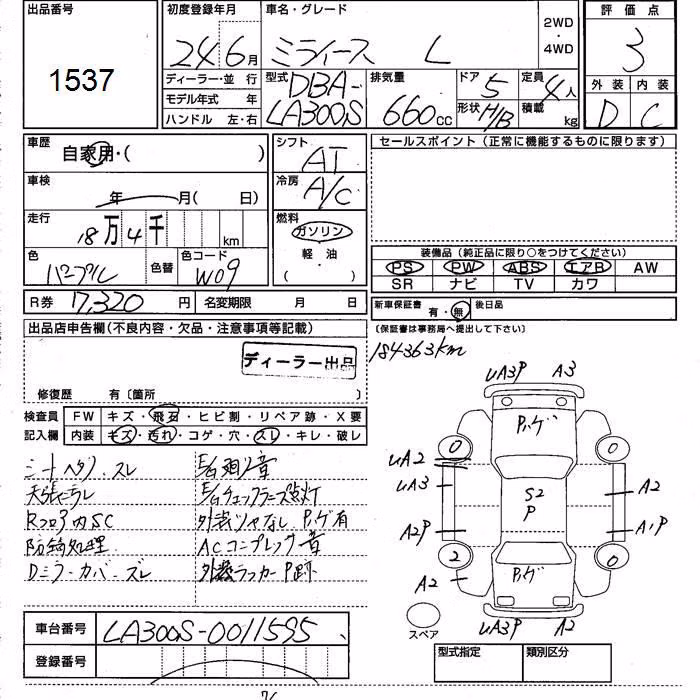 出品番号
1537
初度登録年月
24 6月
車名・グレード
ミライース L
2WD
・
4WD
評価点
3
ディーラー・並 行
モデル年式 年
ハンドル 左・右
型式
DBA-
LA300S
排気量
660cc
ドア
5
形状 H/B
定員
4人
積載
kg
外装 内装
D C
車歴
自家用・( )
車検
年 月( 日)
走行
18万4千 km
色
パープル
色替
色コード
W09
R券 17,320 円 名変期限 月 日
シフト
AT
冷房
A/C
燃料
ガソリン
軽・油
( )
セールスポイント(正常に機能するものに限ります)
装備品(純正品に限り○をつけてください)
PS PW ABS エアB AW
SR ナビ TV カワ
新車保証書 有・無 後日品
(保証書は事務局へ提出して下さい)
184363km
出品店申告欄(不良内容・欠品・注意事項等記載)
ディーラー出品
修復歴 有〔箇所 〕
検査員 FW キズ・飛石・ヒビ割・リペア跡・X要
記入欄 内装 キズ・汚れ・コゲ・穴・スレ・キレ・破レ
シートヘタリ・スレ
天張ヨゴレ
Rフロア内SC
防錆処理
Dミラーカバースレ
E/G廻り音
E/Gチェックランプ点灯
外装ツヤなし ハゲ有
ACコンプレッサ音
外装ラッカーP跡
UA3P A3
ハゲ
0 0
UA2
UA3
S2
P
A2
A2P
A1P
2 0
A2
ハゲ
UA3P A2
スペア
車台番号 LA300S-0011595
登録番号
型式指定 類別区分